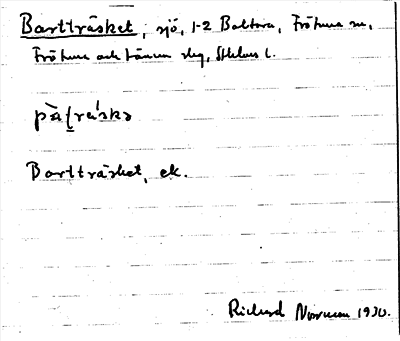 Bartträsket, sjö, 1-2 Baltora, Frötuna sn,
Frötuna och Länna slg, Sthlms l.
Bartträsket, ek.
Richard Norrman 1930.